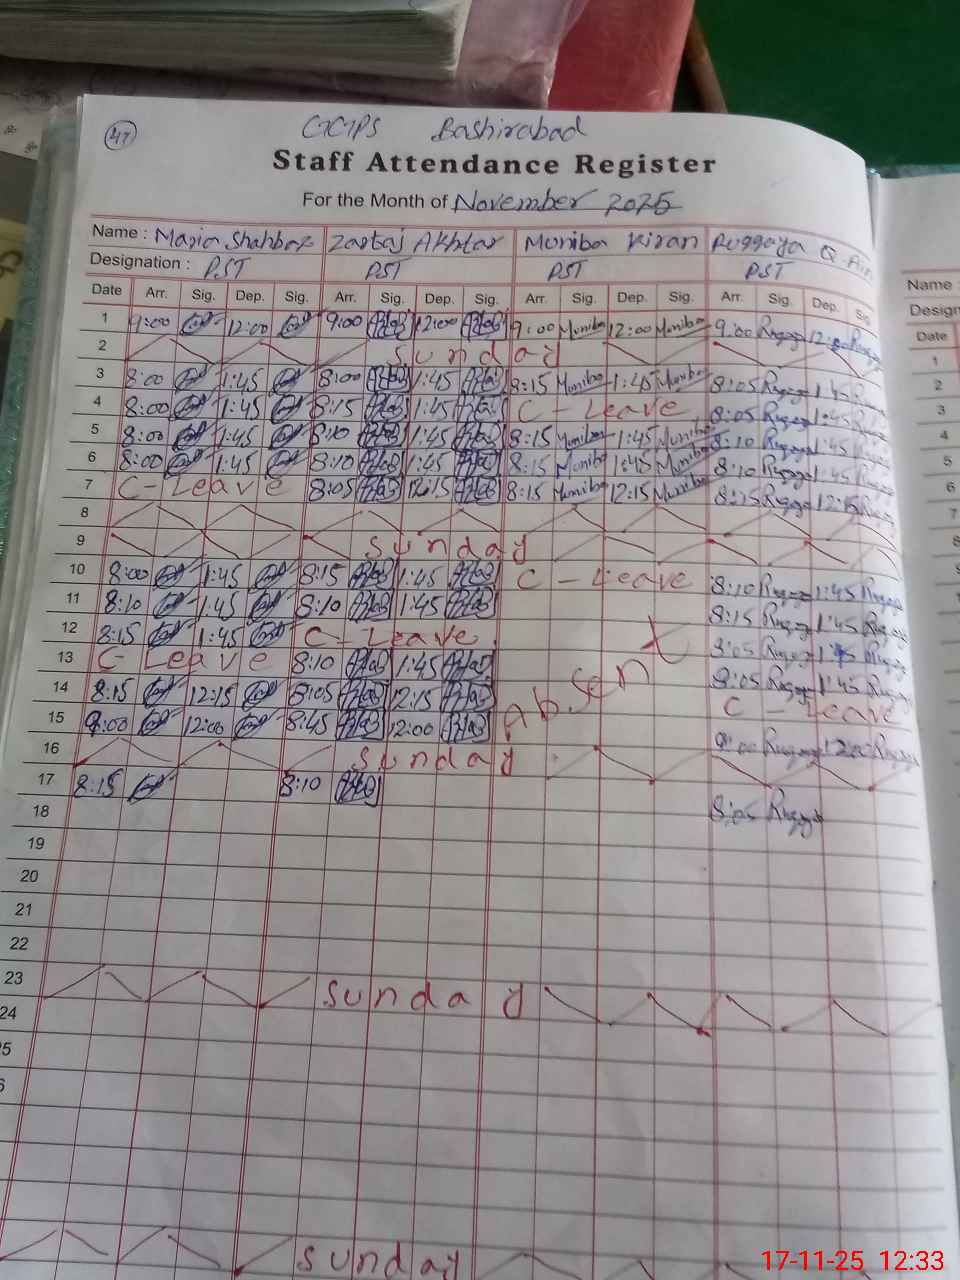 47
GGPS Bashirabad
Staff Attendance Register
For the Month of November 2025
Name : Maria Shahbaz Zartaj Akhtar Muniba Kiran Ruqqaya Q-Ain
Designation : PST PST PST PST
Date Arr. Sig. Dep. Sig. Arr. Sig. Dep. Sig. Arr. Sig. Dep. Sig. Arr. Sig. Dep. Sig.
1 9:00 12:00 9:00 12:00 9:00 Muniba 12:00 Muniba 9:00 Ruqqaya
2 Sunday
3 8:00 1:45 8:00 1:45 8:15 Muniba 1:45 Muniba 8:05 Ruqqaya 1:45
4 8:00 1:45 8:15 1:45 C-Leave 8:05 Ruqqaya 1:45
5 8:00 1:45 8:10 1:45 8:15 Muniba 1:45 Muniba 8:10 Ruqqaya 1:45
6 8:00 1:45 8:10 1:45 8:15 Muniba 1:45 Muniba 8:10 Ruqqaya 1:45
7 C-Leave 8:05 12:15 8:15 Muniba 12:15 Muniba 8:15 Ruqqaya 12:15
8
9 Sunday
10 8:00 1:45 8:15 1:45 C-Leave 8:10 Ruqqaya 1:45
11 8:10 1:45 8:10 1:45 8:15 Ruqqaya 1:45
12 8:15 1:45 C-Leave 8:05 Ruqqaya 1:45
13 C-Leave 8:10 1:45 8:05 Ruqqaya 1:45
14 8:15 12:15 8:05 12:15 Absent C-Leave
15 9:00 12:00 8:45 12:00 9:00 Ruqqaya 12:00
16 Sunday
17 8:15 8:10 8:05 Ruqqaya
18
19
20
21
22
23 Sunday
24
25
6
Sunday
Name :
Design
Date
1
2
3
4
5
6
7
8
9
17-11-25 12:33